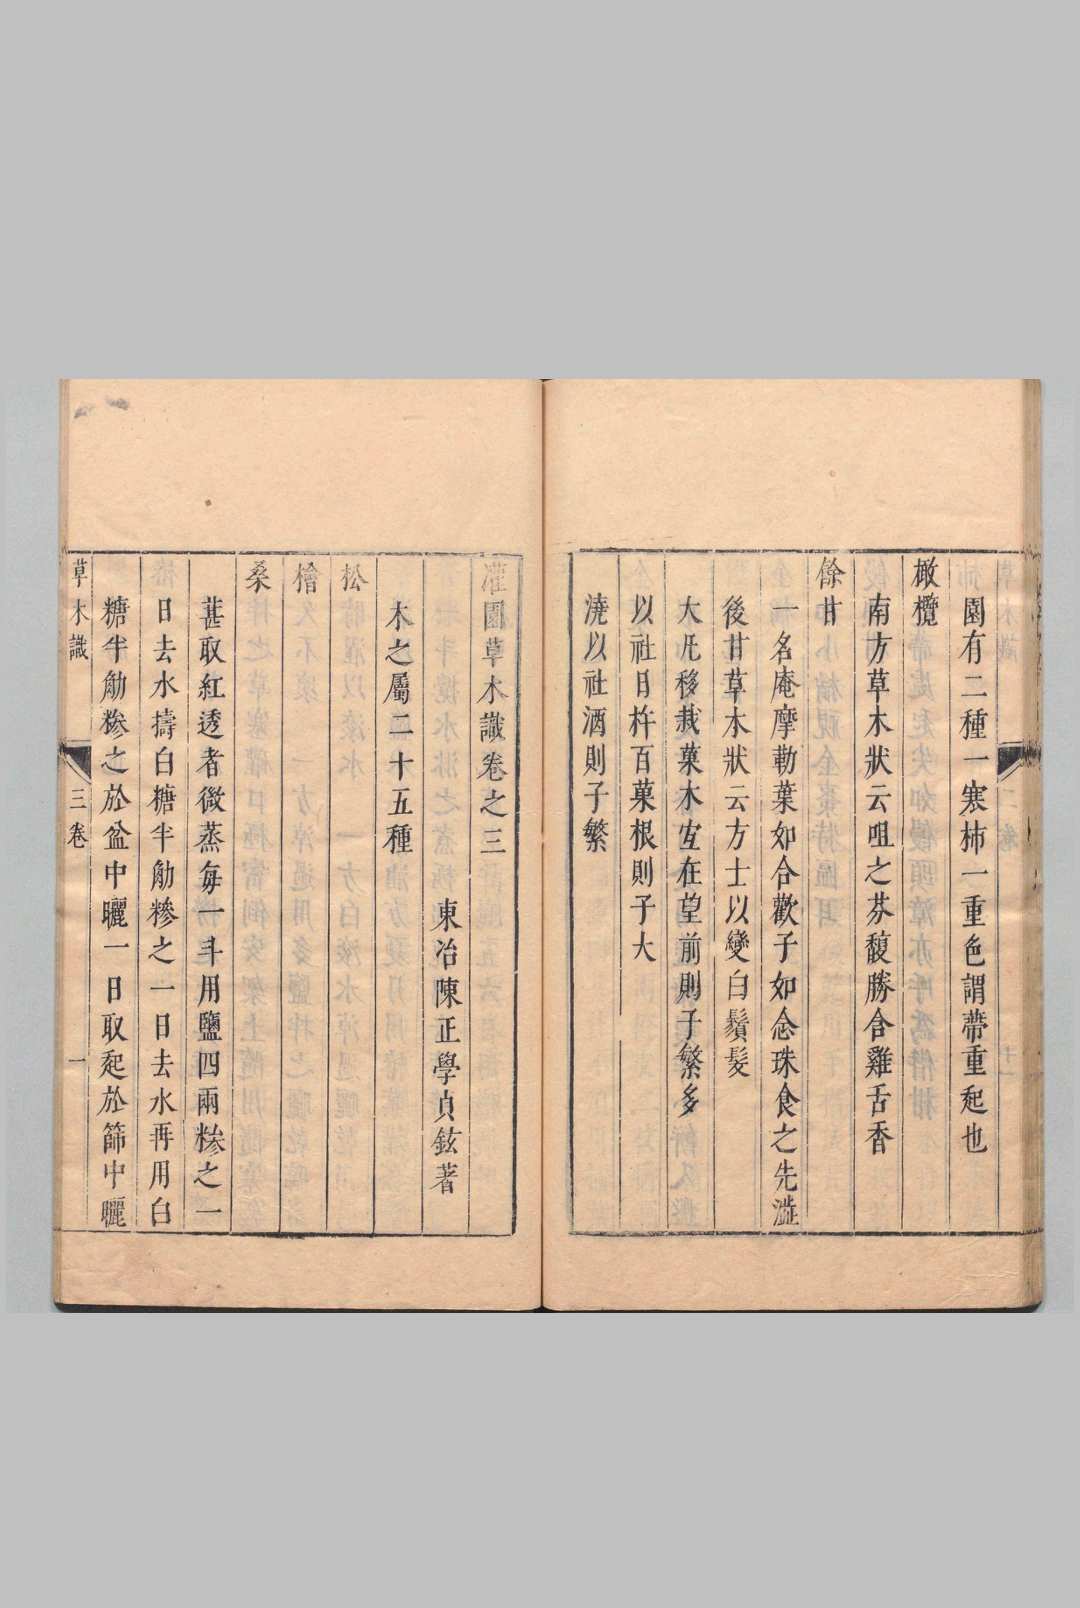 園有二種一寒柿一重色謂蔕重起也
橄欖
南方草木狀云咀之芬馥勝含雞舌香
餘甘
一名庵摩勒葉如合歡子如念珠食之先澁
後甘草木狀云方士以變白鬚髮
大凡移栽菓木宜在望前則子繁多
以社日杵百菓根則子大
澆以社酒則子繁
灌園草木識卷之三
東冶陳正學貞鉉著
木之屬二十五種
松
檜
桑
葚取紅透者微蒸每一斗用鹽四兩糝之一
日去水擣白糖半觔糝之一日去水再用白
糖半觔糝之於盆中曬一日取起於篩中曬
草木識
三卷
一